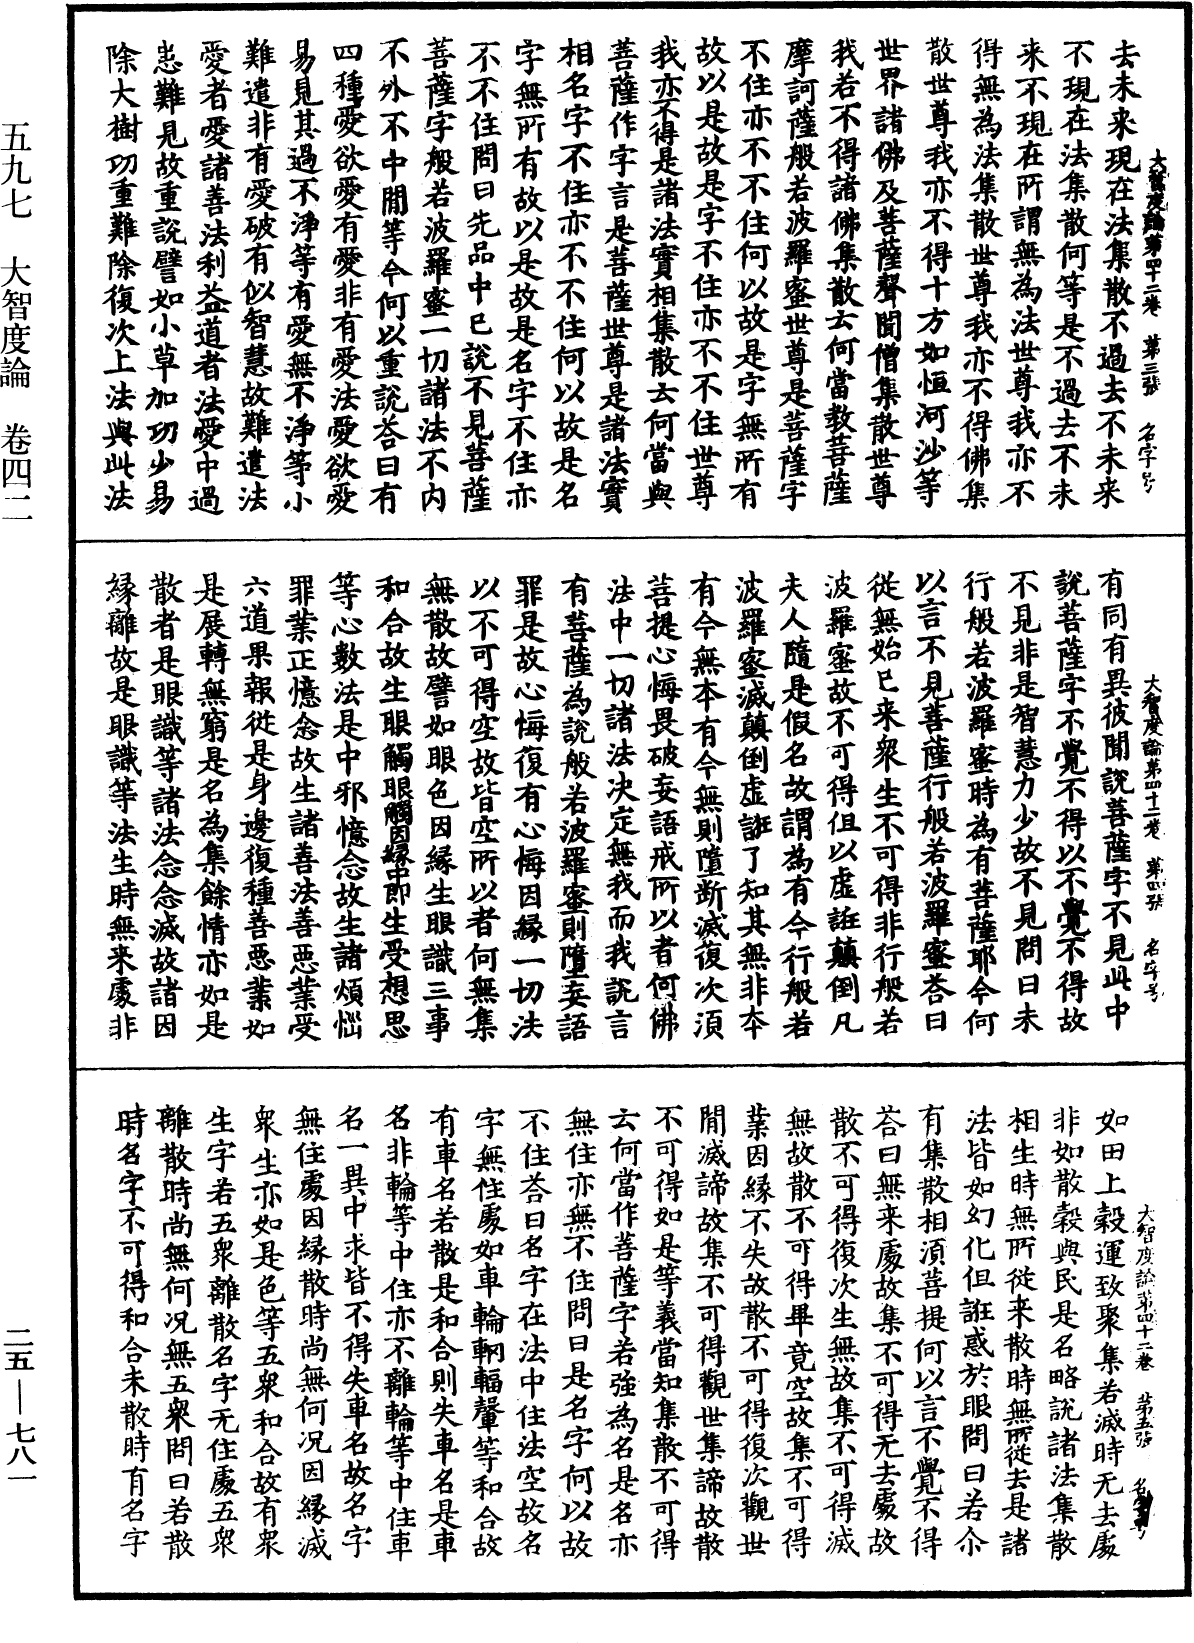 去未来現在法集散不過去不未来
不現在法集散何等是不過去不未
来不現在所謂無為法世尊我亦不
得無為法集散世尊我亦不得佛集
散世尊我亦不得十方如恒河沙等
世界諸佛及菩薩聲聞僧集散世尊
我若不得諸佛集散云何當教菩薩
摩訶薩般若波羅蜜世尊是菩薩字
不住亦不不住何以故是字無所有
故以是故是字不住亦不不住世尊
我亦不得是諸法實相集散云何當與
菩薩作字言是菩薩世尊是諸法實
相名字不住亦不不住何以故是名
字無所有故以是故是名字不住亦
不不住問曰先品中已說不見菩薩
菩薩字般若波羅蜜一切諸法不内
不外不中間等今何以重說荅曰有
四種愛欲愛有愛非有愛法愛欲愛
易見其過不淨等有愛無不淨等小
難遣非有愛破有似智慧故難遣法
愛者愛諸善法利益道者法愛中過
恙難見故重說譬如小草加功少易
除大樹功重難除復次上法與此法
大智度論第四十二卷 第三張 名字号
有同有異彼聞說菩薩字不見此中
說菩薩字不覺不得以不覺不得故
不見非是智慧力少故不見問曰未
行般若波羅蜜時為有菩薩耶今何
以言不見菩薩行般若波羅蜜荅曰
從無始已来衆生不可得非行般若
波羅蜜故不可得但以虛誑顛倒凡
夫人隨是假名故謂為有今行般若
波羅蜜滅顛倒虛誑了知其無非本
有今無本有今無則墮斷滅復次湏
菩提心悔畏破妄語戒所以者何佛
法中一切諸法决定無我而我說言
有菩薩為說般若波羅蜜則墮妄語
罪是故心悔復有心悔因緣一切法
以不可得空故皆空所以者何無集
無散故譬如眼色因緣生眼識三事
和合故生眼觸眼觸因緣中即生受想思
等心數法是中邪憶念故生諸煩惱
罪業正憶念故生諸善法善惡業受
六道果報從是身邊復種善惡業如
是展轉無窮是名為集餘情亦如是
散者是眼識等諸法念念滅故諸因
緣離故是眼識等法生時無来處非
大智度論第四十二卷 第四張 名字号
如田上穀運致聚集若滅時无去處
非如散穀與民是名略說諸法集散
相生時無所從来散時無所從去是諸
法皆如幻化但誑惑於眼問曰若尒
有集散相湏菩提何以言不覺不得
荅曰無来處故集不可得无去處故
散不可得復次生無故集不可得滅
無故散不可得畢竟空故集不可得
業因緣不失故散不可得復次觀世
間滅諦故集不可得觀世集諦故散
不可得如是等義當知集散不可得
云何當作菩薩字若強為名是名亦
無住亦無不住問曰是名字何以故
不住荅曰名字在法中住法空故名
字無住處如車輪輞輻轂等和合故
有車名若散是和合則失車名是車
名非輪等中住亦不離輪等中住車
名一異中求皆不得失車名故名字
無住處因緣散時尚無何況因緣滅
衆生亦如是色等五衆和合故有衆
生字若五衆離散名字无住處五衆
離散時尚無何況無五衆問曰若散
時名字不可得和合未散時有名字
大智度論第四十二卷 第五張
五九七 大智度論 卷四二
二五—七八一